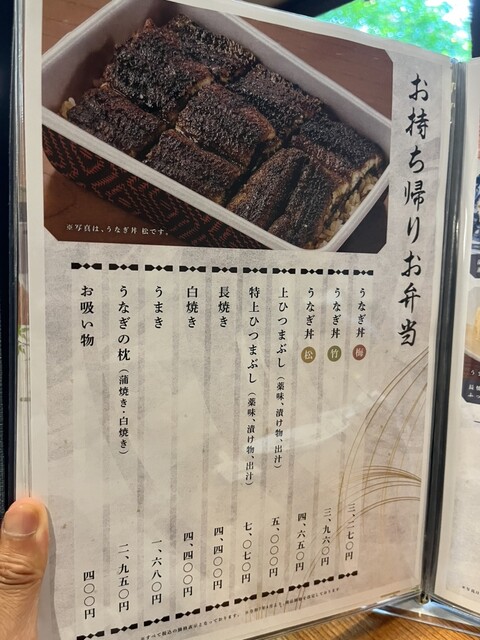 お持ち帰りお弁当
※写真は、うなぎ丼 松です。
うなぎ丼 梅 三、二七〇円
うなぎ丼 竹 三、九六〇円
うなぎ丼 松 四、六五〇円
上ひつまぶし（薬味、漬け物、出汁） 五、〇〇〇円
特上ひつまぶし（薬味、漬け物、出汁） 七、〇七〇円
長焼き 四、四〇〇円
白焼き 四、四〇〇円
うまき 一、六八〇円
うなぎの枕（蒲焼き・白焼き） 二、九五〇円
お吸い物 四〇〇円
※すべて税込の価格表示となっております。